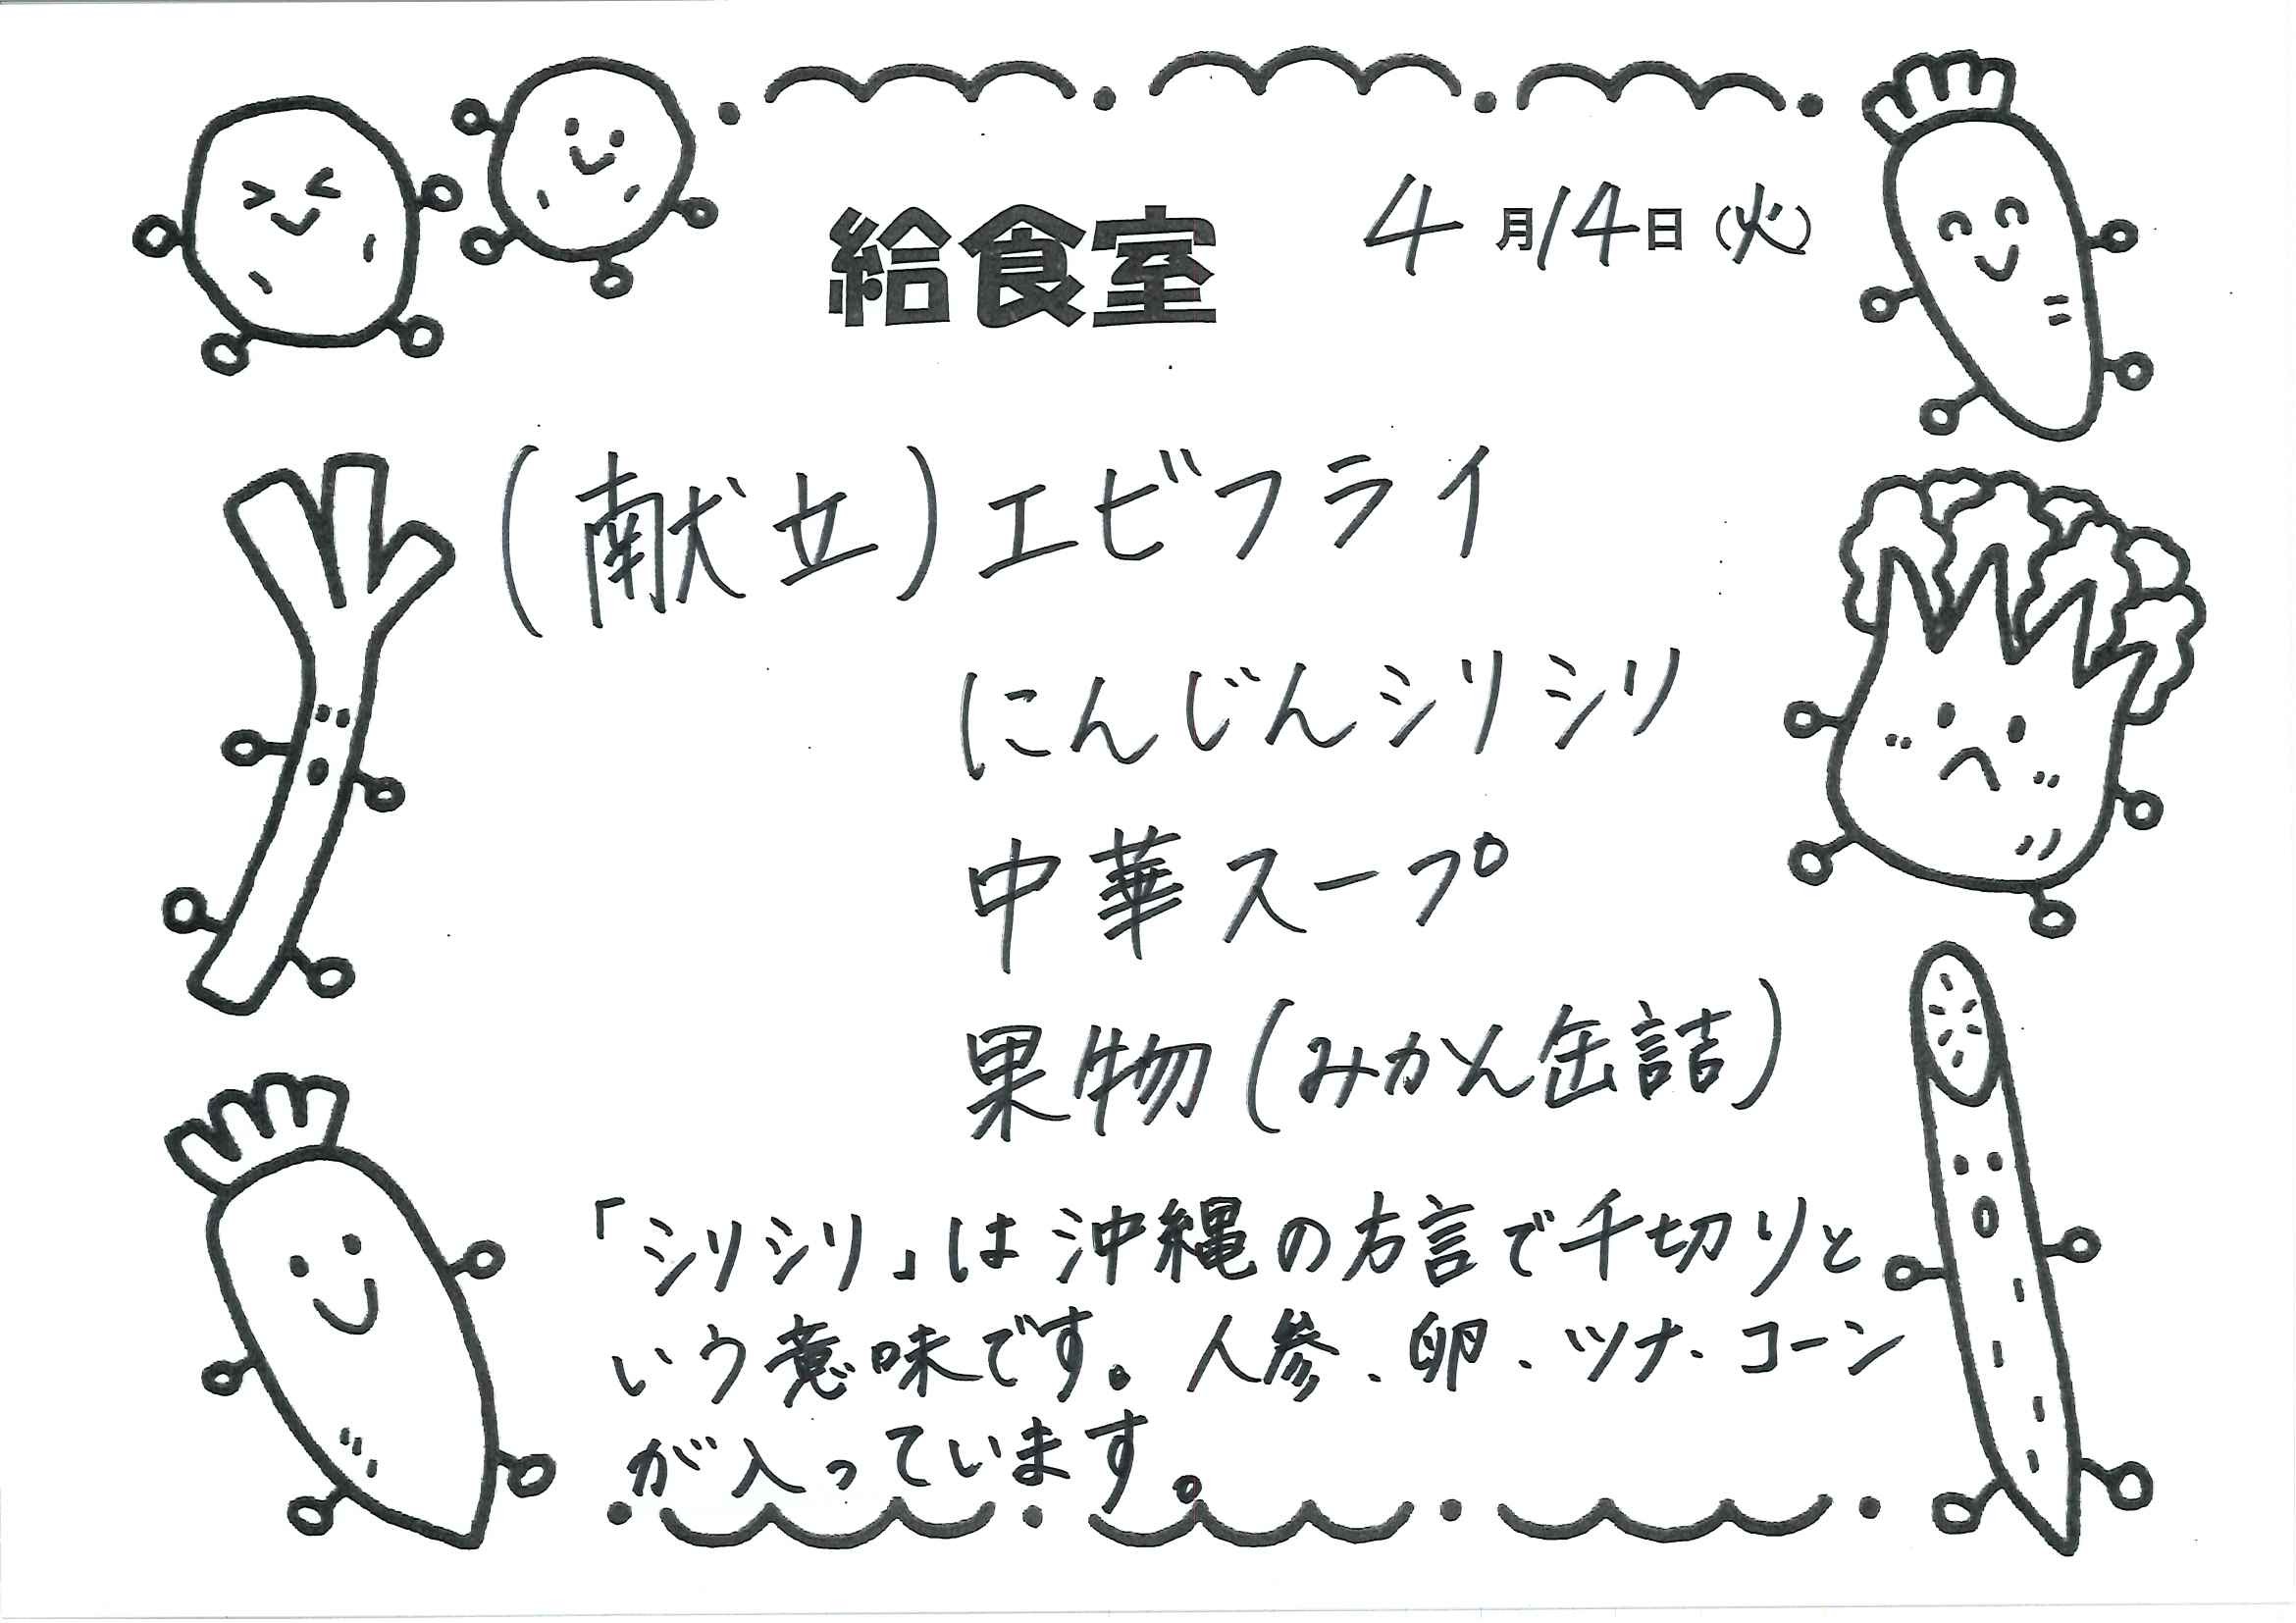 給食室 4月14日(火)
(献立)エビフライ
にんじんシリシリ
中華スープ
果物(みかん缶詰)
「シリシリ」は沖縄の方言で千切りと
いう意味です。人参、卵、ツナ、コーン
が入っています。